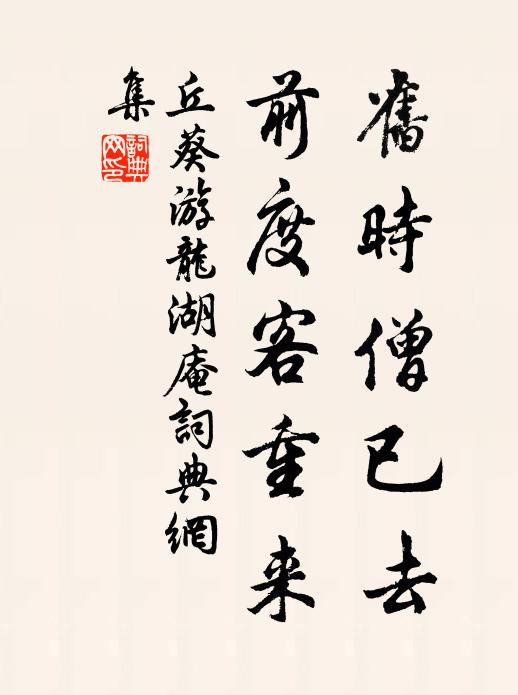 舊時僧已去
前度客重来
丘葵游龍湖庵詞典網
集
詞典網印